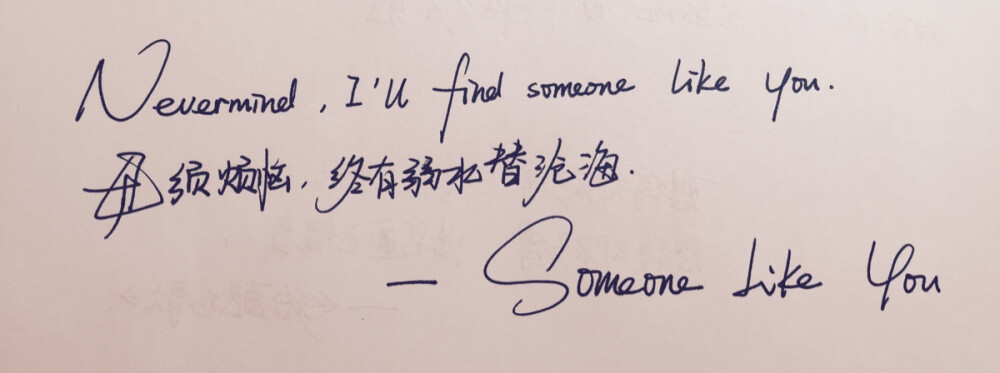 Nevermind, I'll find someone like you.
毋须烦恼，终有弱水替沧海.
— Someone Like You